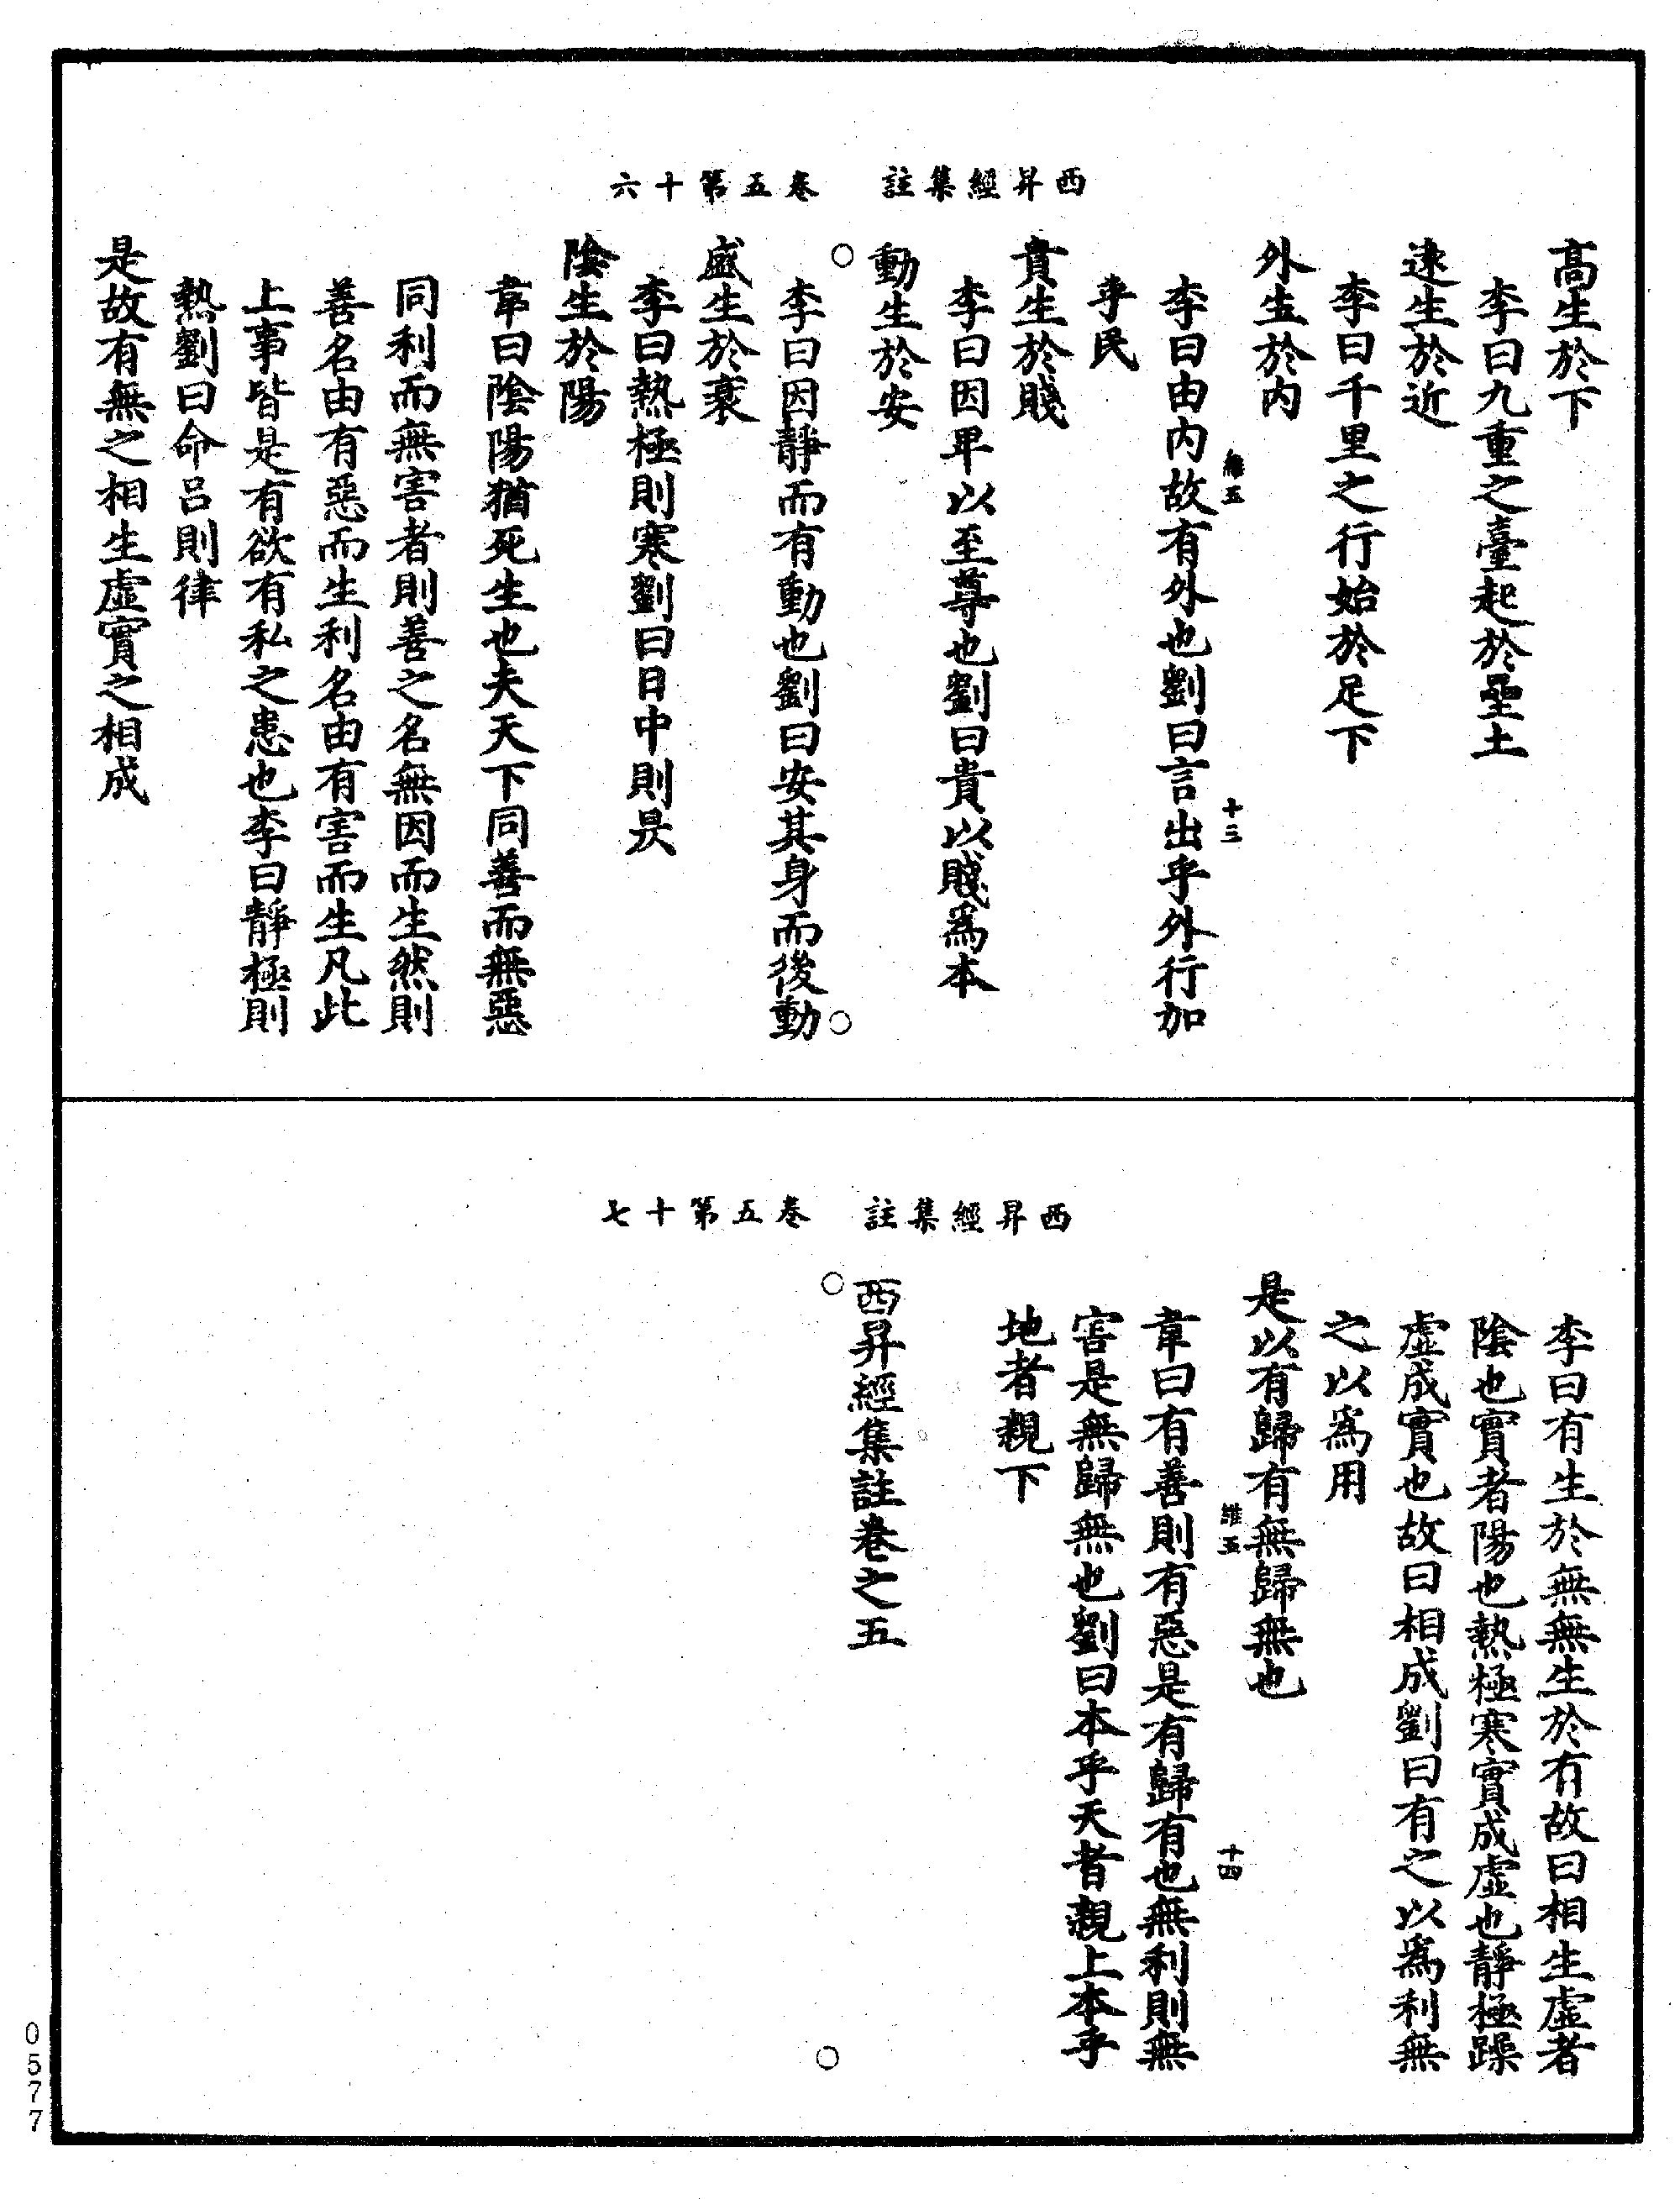 西昇經集註　卷五第十六
高生於下
李曰九重之臺起於壘土
遠生於近
李曰千里之行始於足下
外生於内
維五　十三
李曰由内故有外也劉曰言出乎外行加
乎民
貴生於賤
李曰因卑以至尊也劉曰貴以賤爲本
動生於安
李曰因靜而有動也劉曰安其身而後動
盛生於衰
李曰熱極則寒劉曰日中則昃
陰生於陽
韋曰陰陽猶死生也夫天下同善而無惡
同利而無害者則善之名無因而生然則
善名由有惡而生利名由有害而生凡此
上事皆是有欲有私之患也李曰靜極則
熱劉曰命呂則律
是故有無之相生虛實之相成
西昇經集註　卷五第十七
李曰有生於無無生於有故曰相生虛者
陰也實者陽也熱極寒實成虛也靜極躁
虛成實也故曰相成劉曰有之以爲利無
之以爲用
是以有歸有無歸無也
維五　十四
韋曰有善則有惡是有歸有也無利則無
害是無歸無也劉曰本乎天者親上本乎
地者親下
西昇經集註卷之五
0577